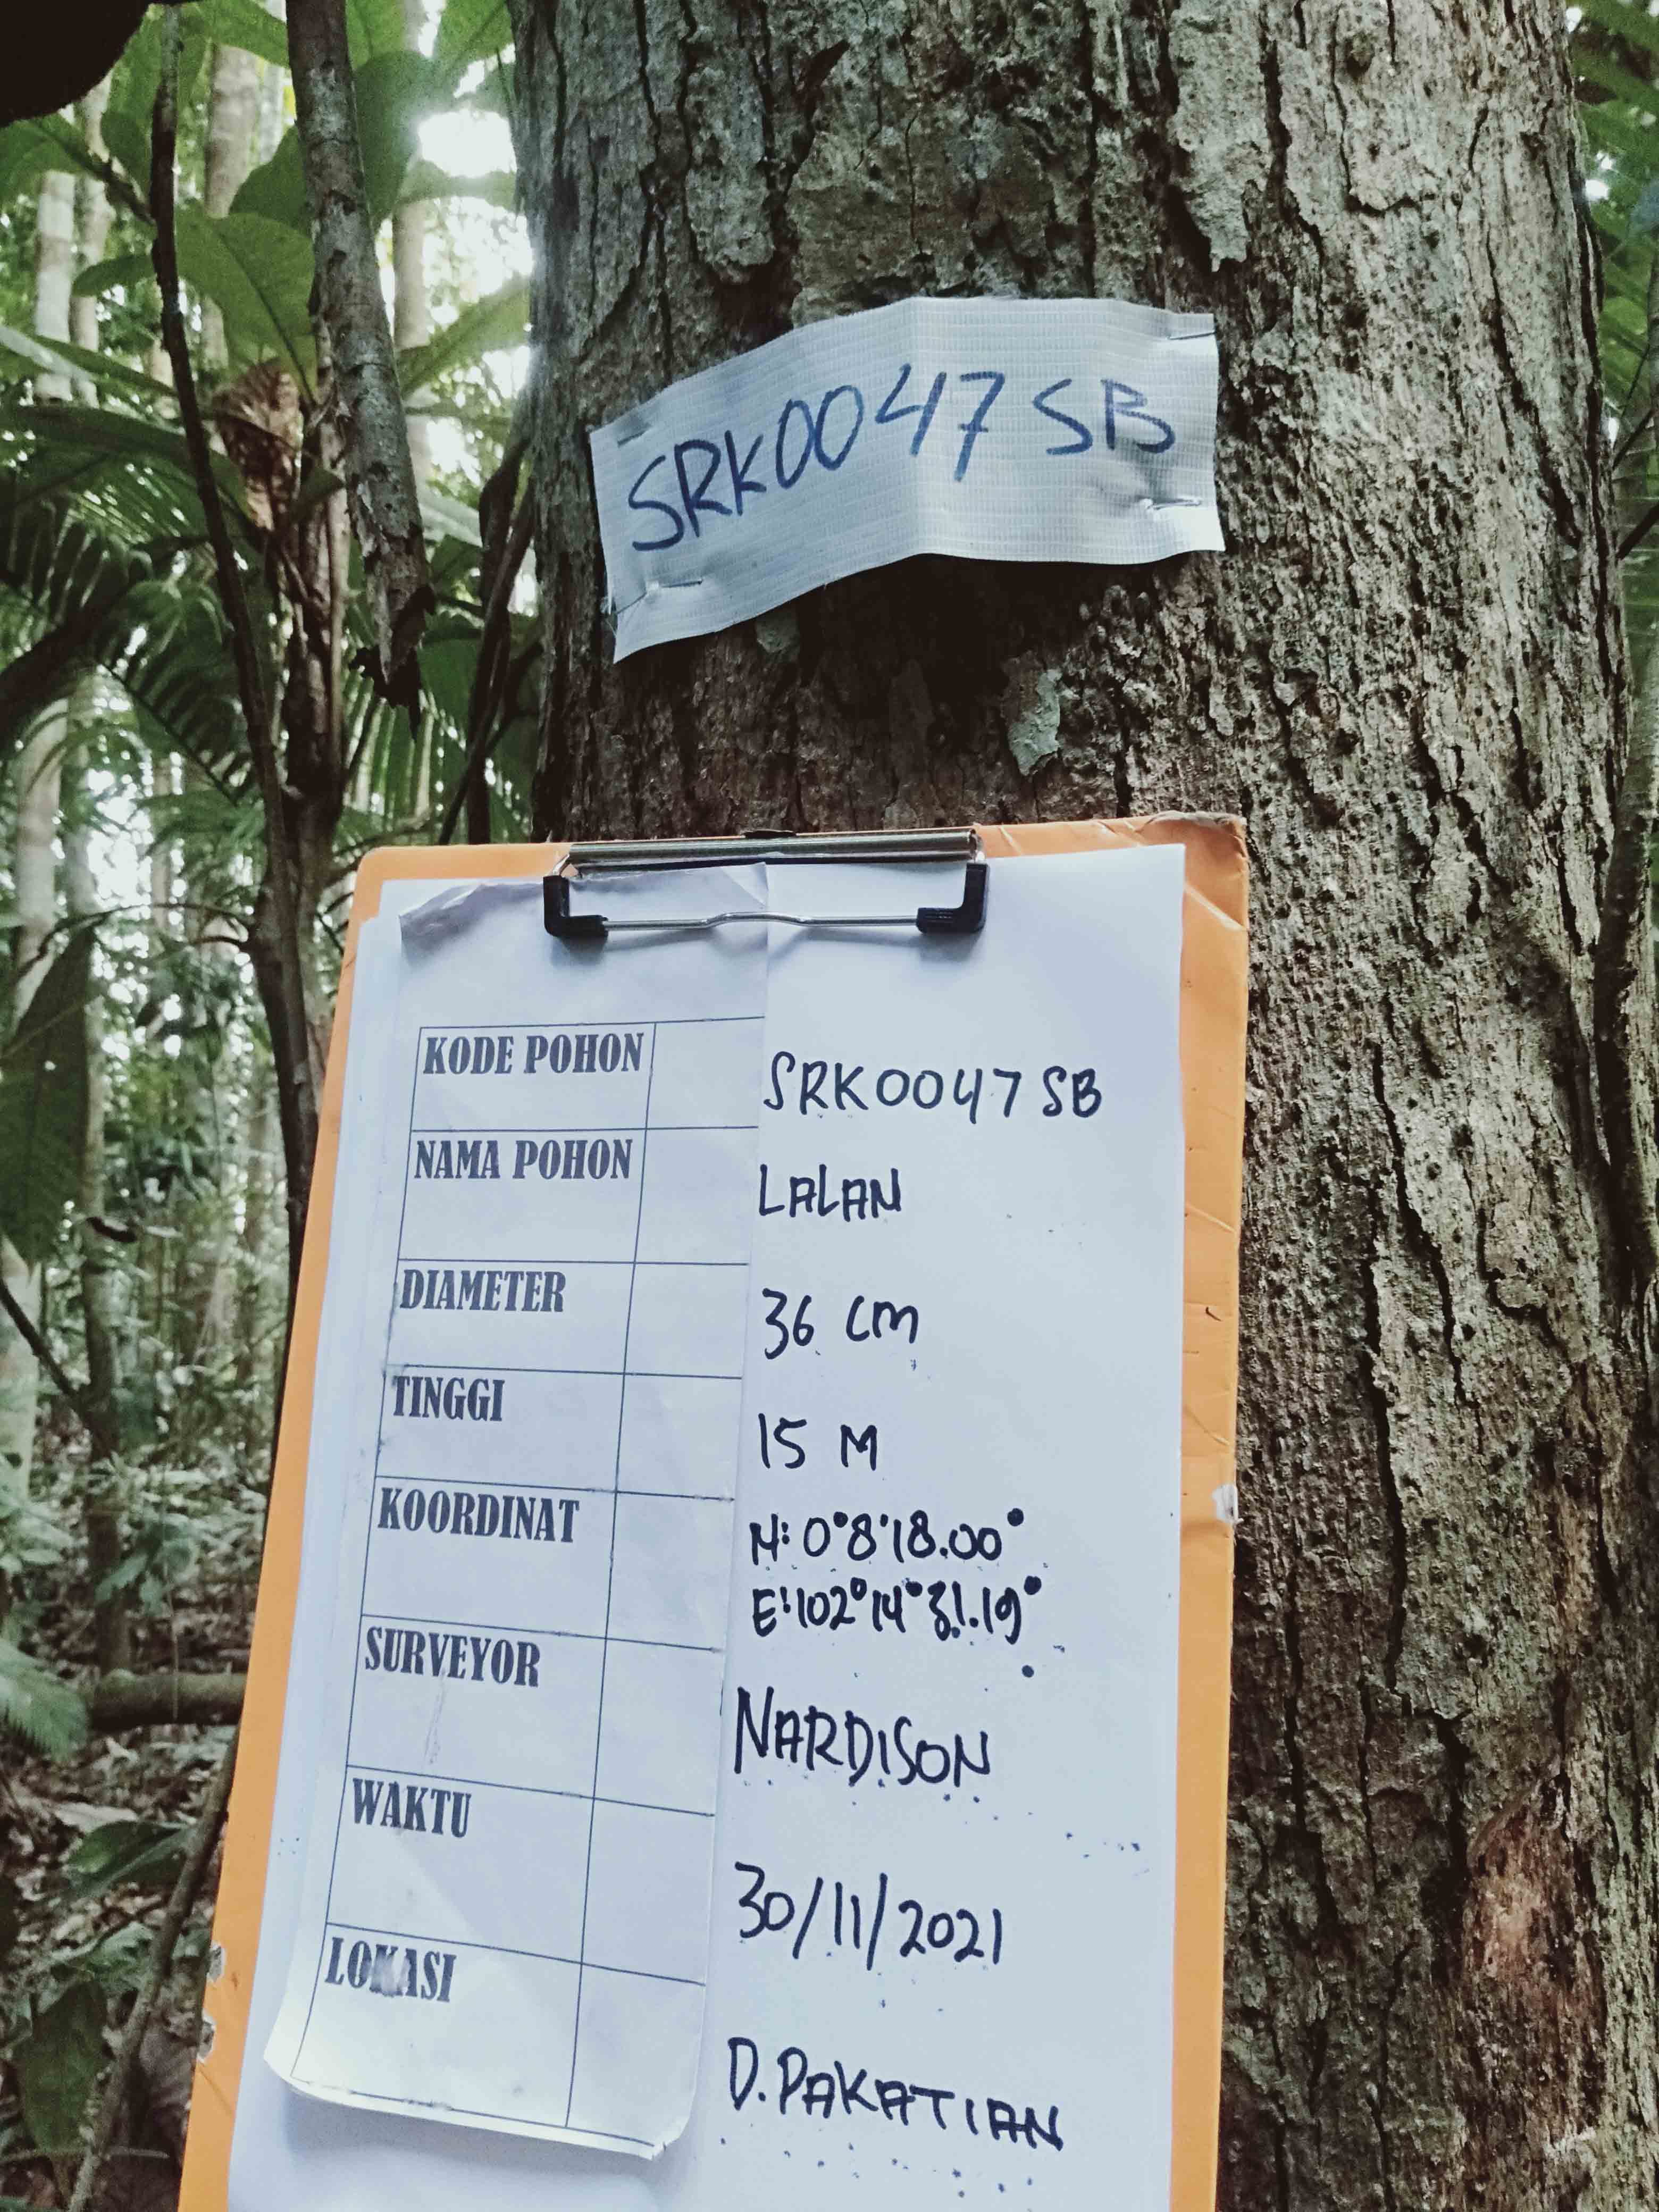 SRK0047 SB
KODE POHON SRK0047 SB
NAMA POHON LALAN
DIAMETER 36 cm
TINGGI 15 M
KOORDINAT N: 0°8'18.00"
E: 102°14'31.19"
SURVEYOR NARDISON
WAKTU 30/11/2021
LOKASI D. PAKATIAN